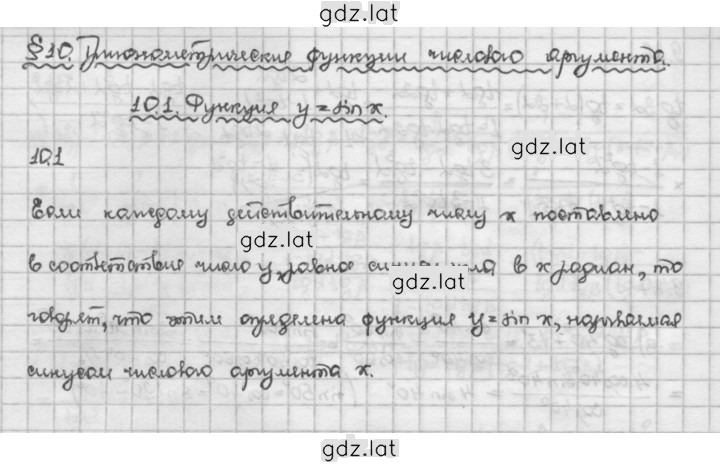 gdz.lat
§10. Тригонометрические функции числового аргумента.
10.1. Функция y = sin x.
gdz.lat
10.1
Если каждому действительному числу x поставлено
gdz.lat
в соответствие число y, равное синусу угла в x радиан, то
gdz.lat
говорят, что этим определена функция y = sin x, называемая
синусом числового аргумента x.
gdz.lat